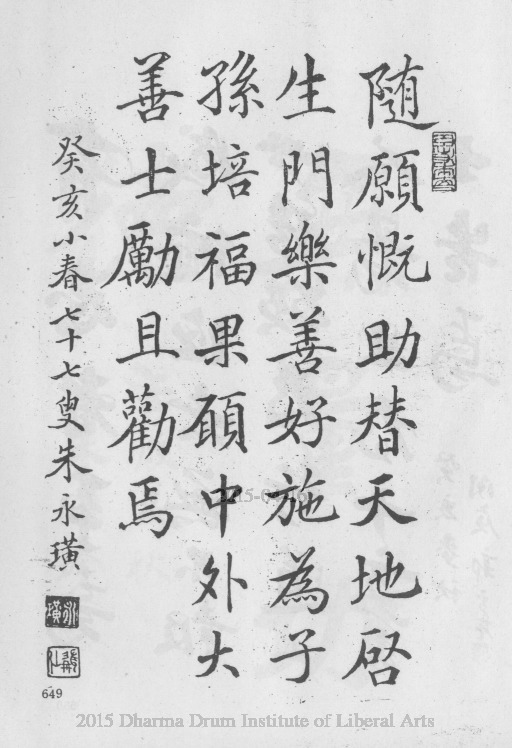 随願慨助替天地啓
生門樂善好施為子
孫培福果願中外大
善士勵且勸焉
癸亥小春七十七叟朱永璜
永璜
649
2015 Dharma Drum Institute of Liberal Arts